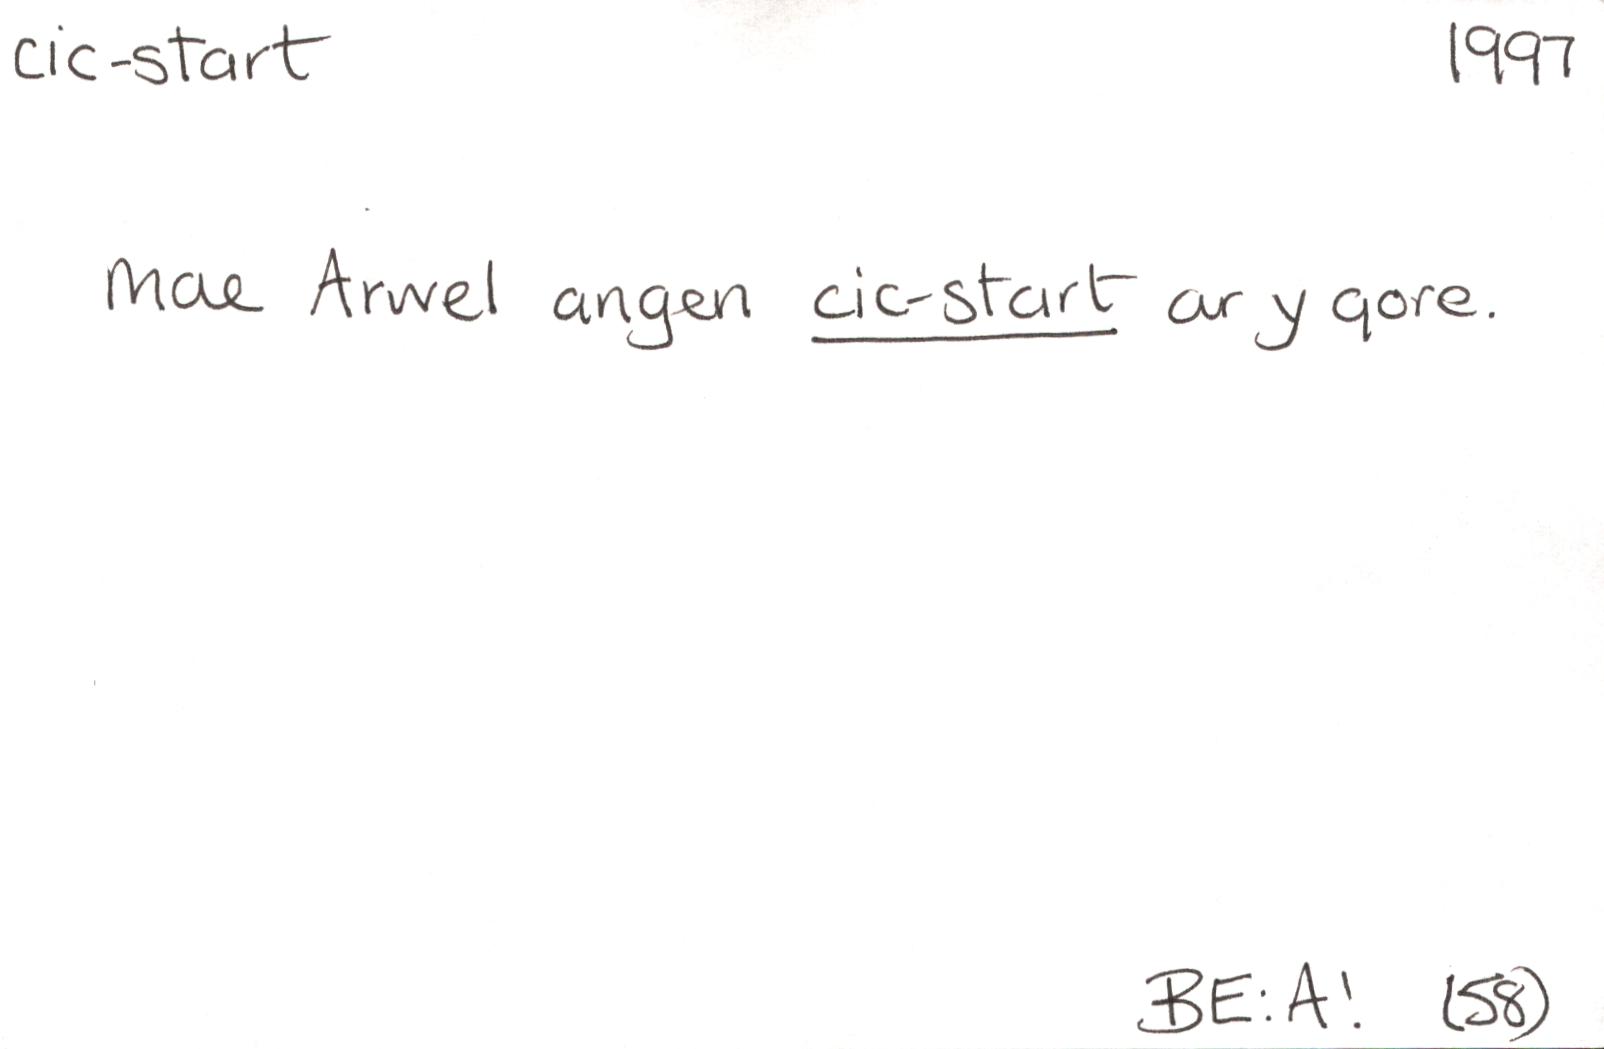 cic-start 1997
Mae Arwel angen cic-start ar y gore.
BE:A! (58)